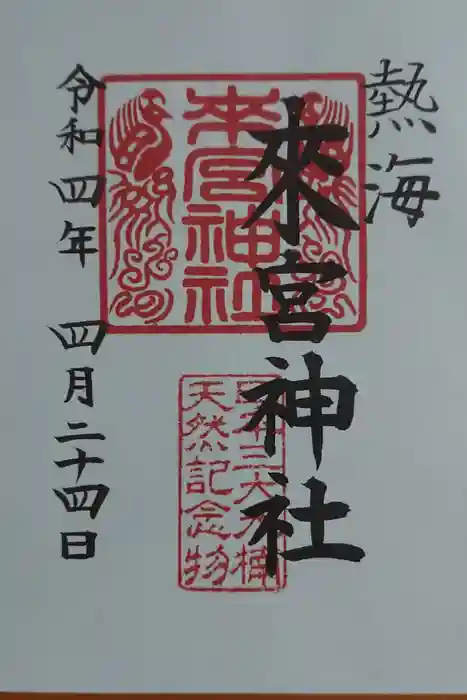 熱海
來宮神社
来宮神社
日本三大大楠
天然記念物
令和四年 四月二十四日